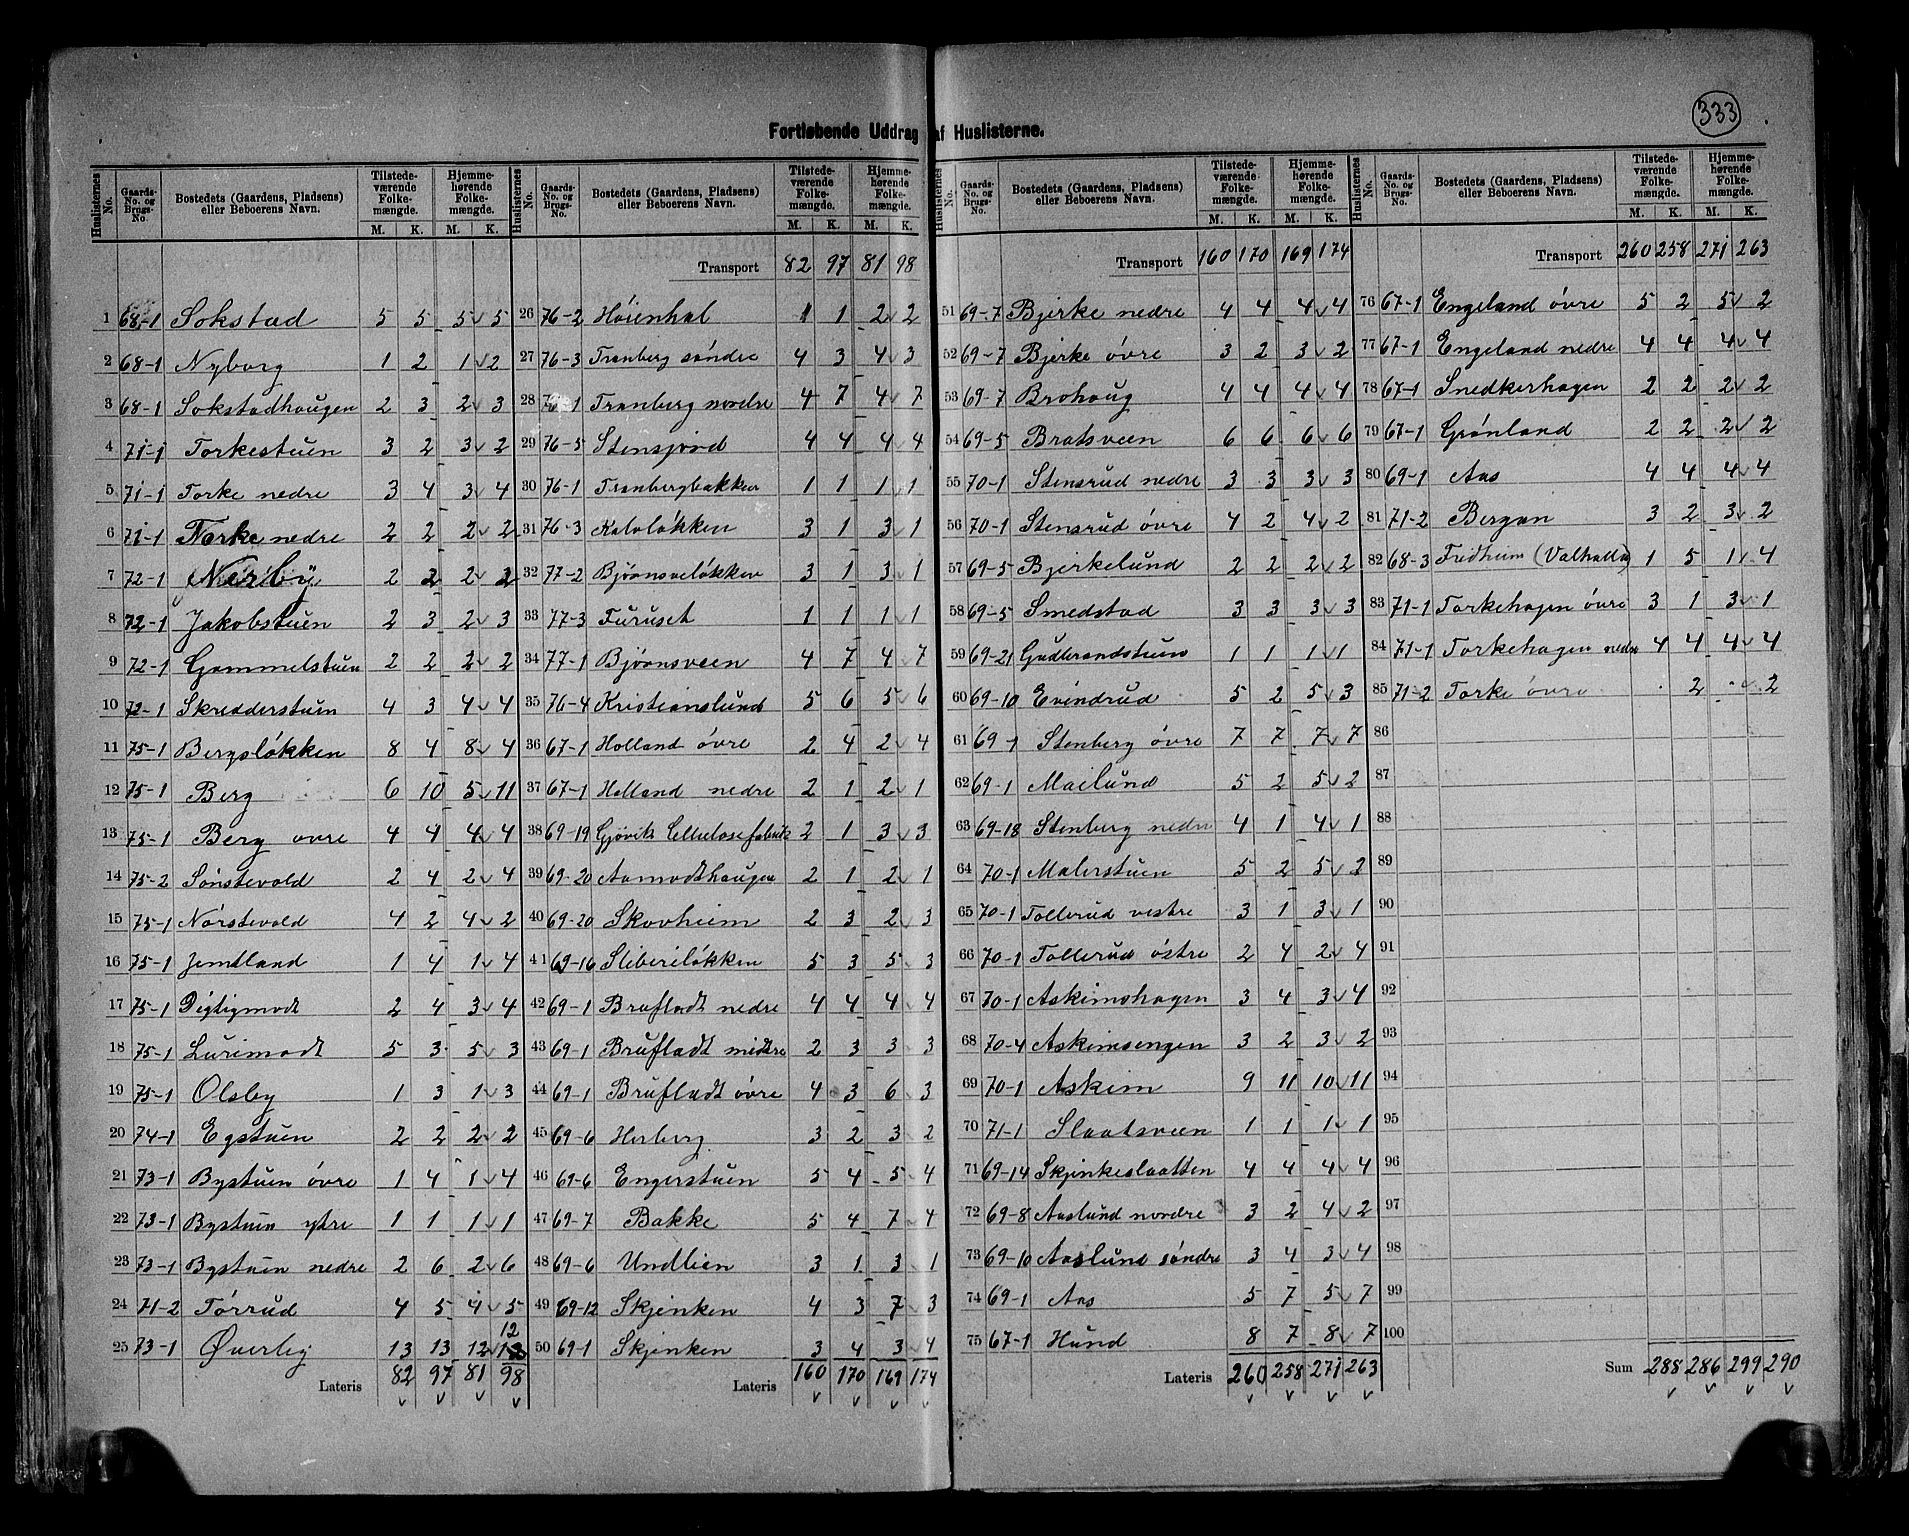 333
Fortløbende Uddrag af Huslisterne.
Huslisternes No. | Gaards-No. og Brugs-No. | Bostedets (Gaardens, Pladsens) eller Beboerens Navn. | Tilstedeværende Folkemængde. M. K. | Hjemmehørende Folkemængde. M. K.
1 68-1 Sokstad 5 5 5 5
2 68-1 Nyborg 1 2 1 2
3 68-1 Sokstadhaugen 2 3 2 3
4 71-1 Torkestuen 3 2 3 2
5 71-1 Torke nedre 3 4 3 4
6 71-1 Torke nedre 2 2 2 2
7 72-1 Nerby 2 2 2 2
8 72-1 Jakobstuen 2 3 2 3
9 72-1 Gammelstuen 2 2 2 2
10 72-1 Skredderstuen 4 3 4 4
11 75-1 Bergsløkken 8 4 8 4
12 75-1 Berg 6 10 5 11
13 75-1 Berg øvre 4 4 4 4
14 75-2 Sønstevold 2 4 2 4
15 75-1 Nørstevold 4 2 4 2
16 75-1 Jemtland 1 4 1 4
17 75-1 Digtigmodt 2 4 3 4
18 75-1 Lurimodt 5 3 5 3
19 75-1 Olsby 1 3 1 3
20 74-1 Egstuen 2 2 2 2
21 73-1 Bystuen øvre 1 4 1 4
22 73-1 Bystuen ytre 1 1 1 1
23 73-1 Bystuen nedre 2 6 2 6
24 71-2 Tørrud 4 5 4 5
25 73-1 Øverby 13 13 12 12
Lateris 82 97 81 98
Transport 82 97 81 98
26 76-2 Høienhal 1 1 2 2
27 76-3 Tranberg søndre 4 3 4 3
28 76-1 Tranberg nordre 4 7 4 7
29 76-5 Stensjord 4 4 4 4
30 76-1 Tranbergbakken 1 1 1 1
31 76-3 Kalvløkken 3 1 3 1
32 77-2 Bjørnsveløkken 3 1 3 1
33 77-3 Furuset 1 1 1 1
34 77-1 Bjørnsveen 4 7 4 7
35 76-4 Kristianslund 5 6 5 6
36 67-1 Holland øvre 2 4 2 4
37 67-1 Holland nedre 2 1 2 1
38 69-19 Gjøvik Cellulosefabrik 2 1 3 3
39 69-20 Aamodthaugen 2 1 2 1
40 69-20 Skovheim 2 3 2 3
41 69-16 Sliberiløkken 5 3 5 3
42 69-1 Brufladt nedre 4 4 4 4
43 69-1 Brufladt midtre 2 3 3 3
44 69-1 Brufladt øvre 4 3 6 3
45 69-6 Herberg 3 2 3 2
46 69-6 Engerstuen 5 4 5 4
47 69-7 Bakke 5 4 7 4
48 69-6 Undlien 3 1 3 1
49 69-12 Skjenken 4 3 7 3
50 69-1 Skjenken 3 4 3 4
Lateris 160 170 169 174
Transport 160 170 169 174
51 69-7 Bjerke nedre 4 4 4 4
52 69-7 Bjerke øvre 3 2 3 2
53 69-7 Brohaug 4 4 4 4
54 69-5 Bratsveen 6 6 6 6
55 70-1 Stensrud nedre 3 3 3 3
56 70-1 Stensrud øvre 4 2 4 2
57 69-5 Bjerkelund 2 2 2 2
58 69-5 Smedstad 3 3 3 3
59 69-21 Gudbrandstuen 1 1 1 1
60 69-10 Evindrud 5 2 5 3
61 69-1 Stenberg øvre 7 7 7 7
62 69-1 Mailund 5 2 5 2
63 69-18 Stenberg nedre 4 1 4 1
64 70-1 Malerstuen 5 2 5 2
65 70-1 Tollerud vestre 3 1 3 1
66 70-1 Tollerud østre 2 4 2 4
67 70-1 Askimshagen 3 4 3 4
68 70-4 Askimsengen 3 2 3 2
69 70-1 Askim 9 11 10 11
70 71-1 Slaatsveen 1 1 1 1
71 69-14 Skjenkeslaatten 4 4 4 4
72 69-8 Aaslund nordre 3 2 4 2
73 69-10 Aaslund søndre 3 4 3 4
74 69-1 Aas 5 7 5 7
75 67-1 Hund 8 7 8 7
Lateris 260 258 271 263
Transport 260 258 271 263
76 67-1 Engeland øvre 5 2 5 2
77 67-1 Engeland nedre 4 4 4 4
78 67-1 Snedkerhagen 2 2 2 2
79 67-1 Grønland 2 2 2 2
80 69-1 Aas 4 4 4 4
81 71-2 Bergan 3 2 3 2
82 68-3 Fridheim (Valhalla) 1 5 1 4
83 71-1 Torkehagen øvre 3 1 3 1
84 71-1 Torkehagen nedre 4 4 4 4
85 71-2 Torke øvre . 2 . 2
86
87
88
89
90
91
92
93
94
95
96
97
98
99
100
Sum 288 286 299 290